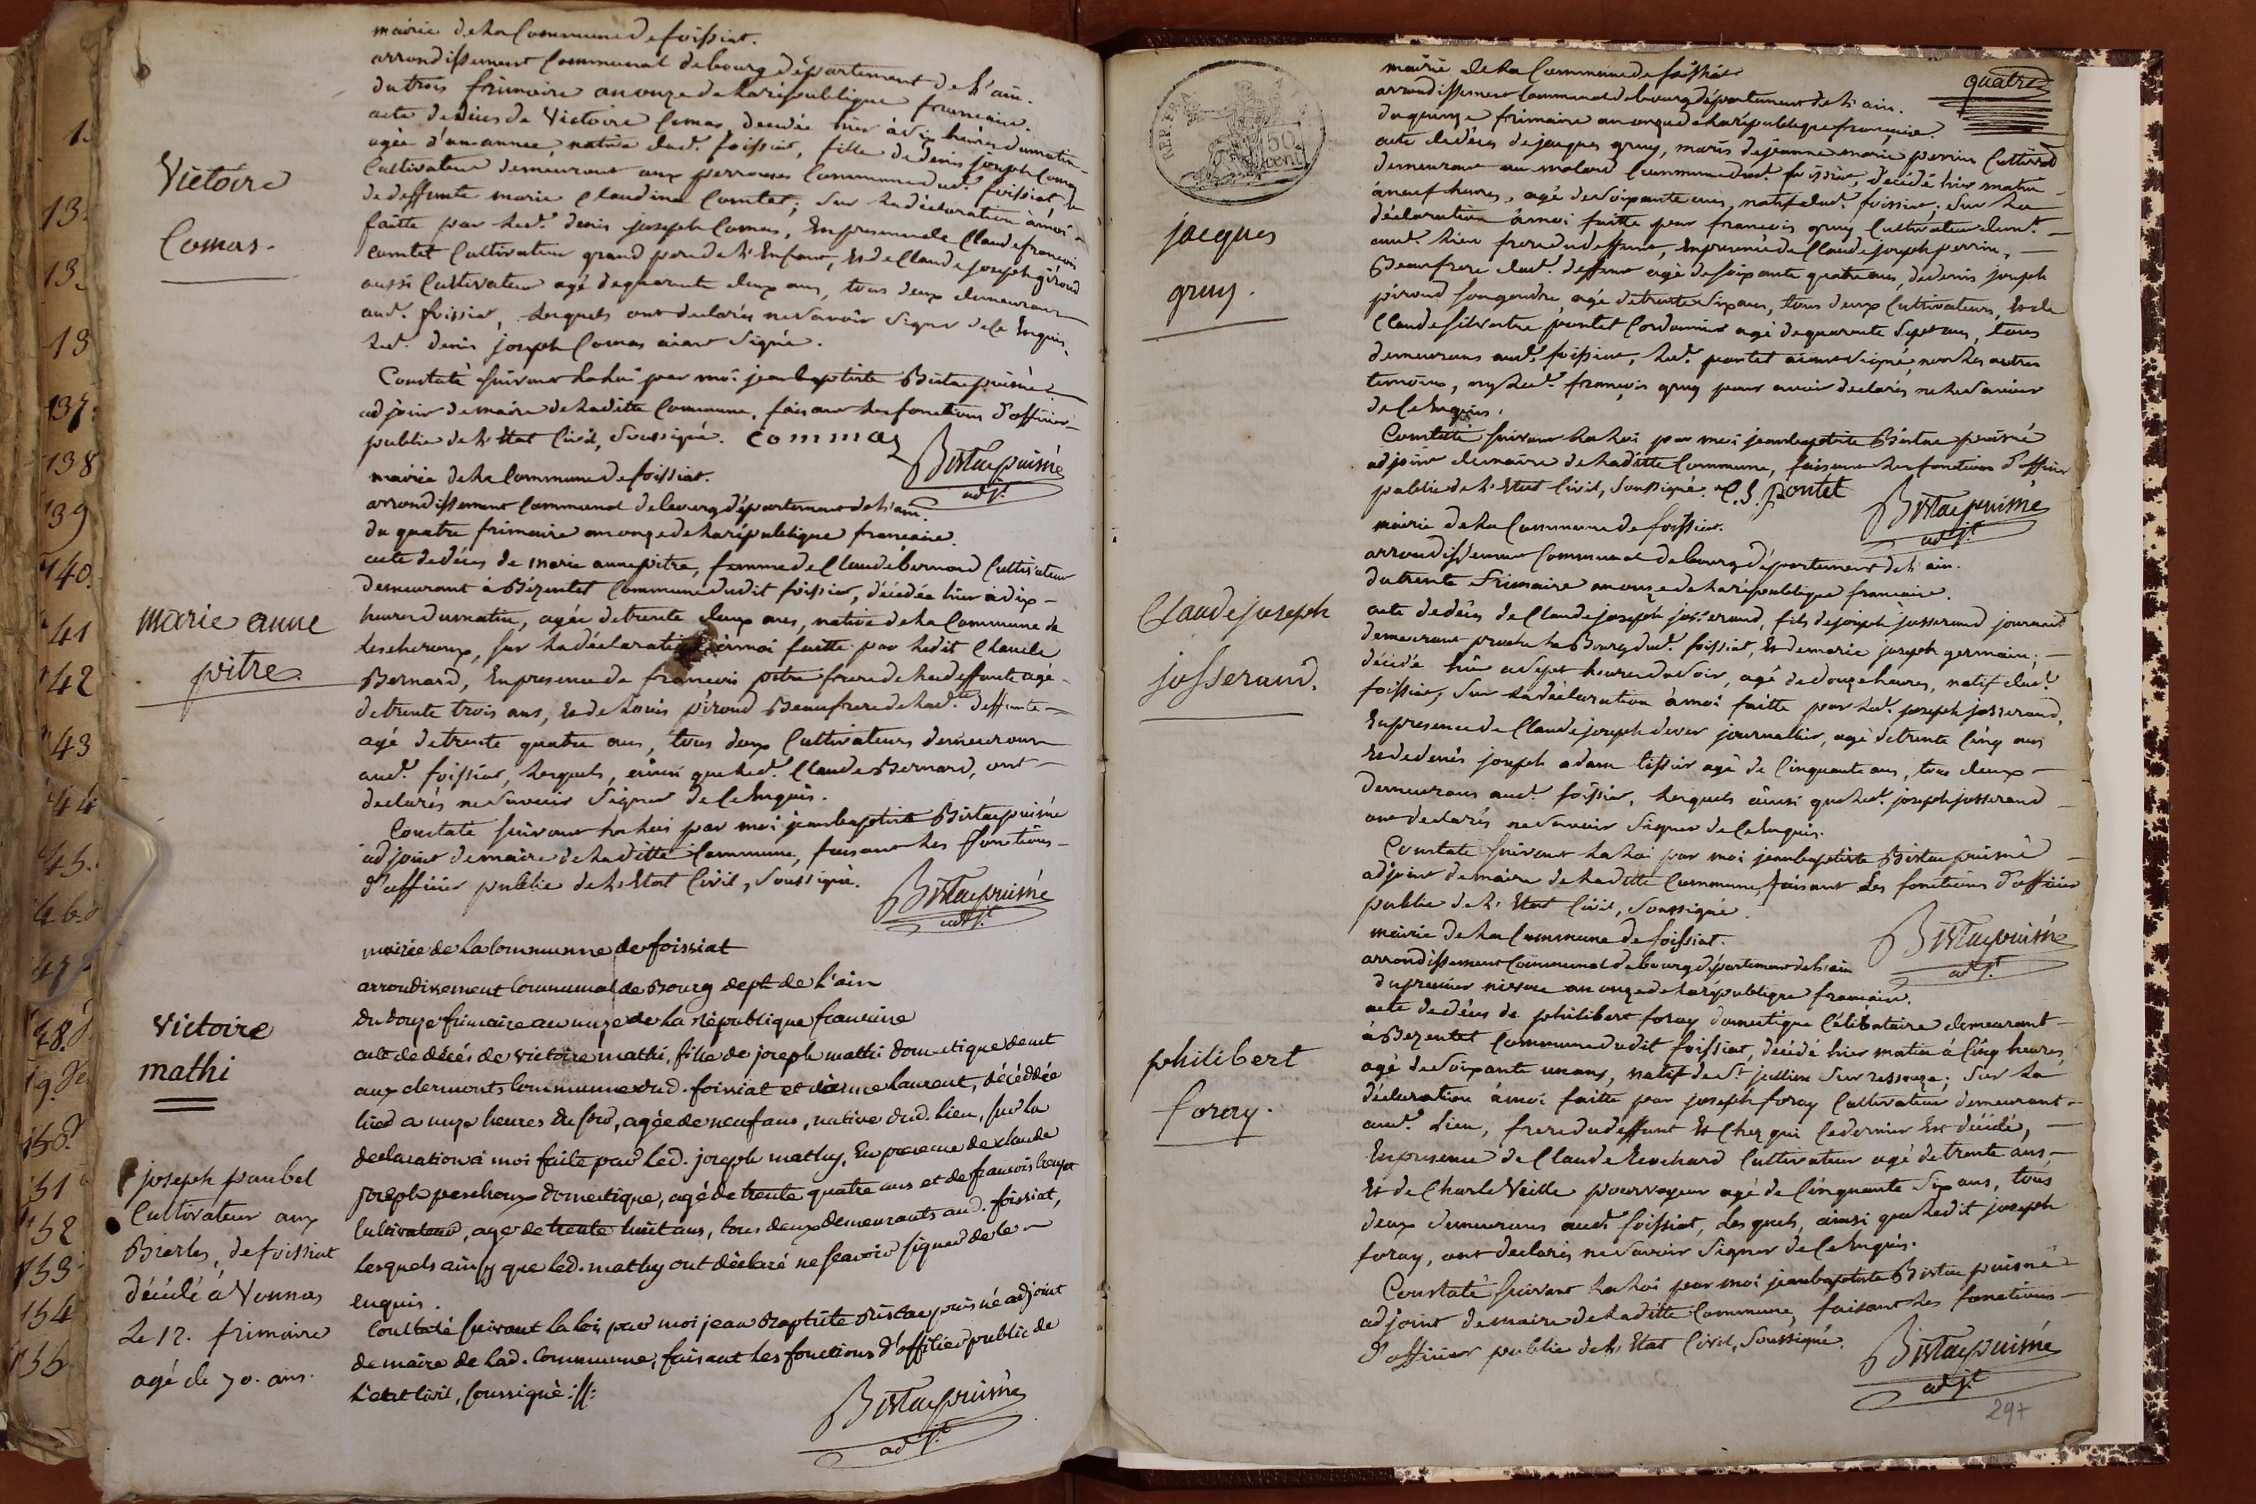 mairie de La Commune de foissiat.
arrondissement Communal de bourg département de L'ain.
du trois frimaire an onze de La république francaise.
acte de décès de Victoire Comas, décédée hier à dix heures du matin
agée d'une année, native dud. foissiat, fille de denis joseph Comas
Cultivateur demeurant aux perrouses Commune dud. foissiat, et
de deffunte marie Claudine Comtet; Sur La déclaration à moi
faitte par Led. denis joseph Comas, En presence de Claude francois
Comtet Cultivateur grand pere de L'Enfant, et de Claude joseph giroud
aussi Cultivateur agé de quarente deux ans, tous deux demeurans
aud. foissiat, Lesquels ont declarés ne Savoir Signer de Ce Enquis,
Led. denis joseph Comas aiant Signé.
Constaté Suivant La Loi par moi jean baptiste Bistac puisné
adjoint de maire de La ditte Commune, faisant Les fonctions d'officier
public de L'Etat Civil, Soussigné. Commas
Bistac puisné
adjt.
Victoire
Comas.
mairie de La Commune de foissiat.
arrondissement Communal de bourg département de L'ain.
du quatre frimaire an onze de La république francaise.
acte de décès de marie anne pitre, femme de Claude bernard Cultivateur
demeurant à Bézentet Commune dudit foissiat, décédée hier à dix
heures du matin, agée de trente deux ans, native de La Commune de
Lescheroux, Sur La déclaration à moi faitte par Ledit Claude
Bernard, En presence de francois pitre frere de La deffunte agé
de trente trois ans, et de Louis péroud Beaufrere de Lad. deffunte
agé de trente quatre ans, tous deux Cultivateurs demeurans
aud. foissiat, Lesquels, ainsi que Led. Claude Bernard, ont
declarés ne Savoir Signer de Ce Enquis.
Constaté Suivant La Loi par moi jean baptiste Bistac puisné
adjoint de maire de La ditte Commune, faisant Les fonctions
d'officier public de L'Etat Civil, Soussigné.
Bistac puisné
adjt.
marie anne
pitre.
mairie de La Commune de foissiat
arrondissement Communal de Bourg dept. de L'ain
du douze frimaire an onze de La république francaise
acte de décés de victoire mathi, fille de joseph mathi domestique demt
aux clermonts Commune dud. foissiat et Laurent, décéddée
hier a onze heures du soir, agée de neuf ans, native dud. lieu, sur la
declaration à moi faite par Led. joseph mathy, En presence de claude
joseph pescheux domestique, agé de trente quatre ans et de francois
Cultivateur, age de trente huit ans, tous deux demeurants aud. foissiat,
Lesquels ainsy que Led. mathy ont déclaré ne scavoir signer de ce
enquis.
Constaté suivant La Loi par moi jean Baptiste Bistac puisné adjoint
de maire de Lad. Commune, faisant Les fonctions d'officier public de
L'etat civil, soussigné.
Bistac puisné
adjt.
Victoire
mathi
joseph paubel
Cultivateur aux
Bierles, de foissiat
décédé à Vonnas
Le 12. frimaire
agé de 70. ans.
1.
13.
13.
13
137.
138
139
140.
41
42
43
44
45.
46.
47
48.
49.
150.
151
152
153
154
155
quatre
REP. FRA.
50
cent.
mairie de La Commune de foissiat
arrondissement Communal de bourg département de L'ain.
du quinze frimaire an onze de La république francaise.
acte de décès de jacques gruy, maris de jeanne marie perrin Cultivatr
demeurant au molard Commune dud. foissiat, décédé hier matin
à neuf heures, agé de Soixante ans, natif dud. foissiat; Sur La
déclaration à moi faitte par francois gruy Cultivateur demt.
aud. Lieu frere du deffunt, En presence de Claude joseph perrin,
Beaufrere dud. deffunt agé de Soixante quatre ans, de denis joseph
péroud Son gendre, agé de trente Six ans, tous deux Cultivateurs, et de
Claude Silvestre pontet Cordonnier agé de quarante Sept ans, tous
demeurans aud. foissiat, Led. pontet aiant Signé, non Les autres
temoins, ny Led. françois gruy pour avoir declarés ne Le Savoir
de Ce Enquis.
Constaté Suivant La Loi par moi jean baptiste Bistac puisné
adjoint de maire de La ditte Commune, faisant Les fonctions d'officier
public de L'Etat Civil, Soussigné. C.S. pontet
Bistac puisné
adjt.
jacques
gruy.
mairie de La Commune de foissiat.
arrondissement Communal de bourg département de L'ain.
du trente frimaire an onze de La république francaise.
acte de décès de Claude joseph josserand, fils de joseph josserand journalr.
demeurant proche Le Bourg dud. foissiat, et de marie joseph germain;
décédé hier a Sept heures du Soir, agé de douze heures, natif dud.
foissiat, Sur La déclaration à moi faitte par Led. joseph josserand,
En presence de Claude joseph dever journallier, agé de trente Cinq ans
et de denis joseph adam tissier agé de Cinquante ans, tous deux
demeurans aud. foissiat, Lesquels ainsi que Led. joseph josserand
ont declarés ne Savoir Signer de Ce Enquis.
Constaté Suivant La Loi par moi jean baptiste Bistac puisné
adjoint de maire de La ditte Commune, faisant Les fonctions d'officier
public de L'Etat Civil, Soussigné.
Bistac puisné
adjt.
Claude joseph
josserand.
mairie de La Commune de foissiat.
arrondissement Communal de bourg département de L'ain
du premier nivose an onze de La république francaise.
acte de décès de philibert foray domestique Célibataire demeurant
à Bezentet Commune dudit foissiat, décédé hier matin à Cinq heures
agé de Soixante un ans, natif de St. jullien Sur ressouze; Sur La
déclaration à moi faitte par joseph foray Cultivateur demeurant
aud. Lieu, frere du deffunt et Chez qui Ce dernier Est décédé,
En presence de Claude Cultivateur agé de trente ans
et de Charle Veille pourvoyeur agé de Cinquante Six ans, tous
deux demeurans aud. foissiat, Lesquels, ainsi que Ledit joseph
foray, ont declarés ne Savoir Signer de Ce Enquis.
Constaté Suivant La Loi par moi jean baptiste Bistac puisné
adjoint de maire de La ditte Commune, faisant Les fonctions
d'officier public de L'Etat Civil, Soussigné.
Bistac puisné
adjt.
philibert
foray.
297